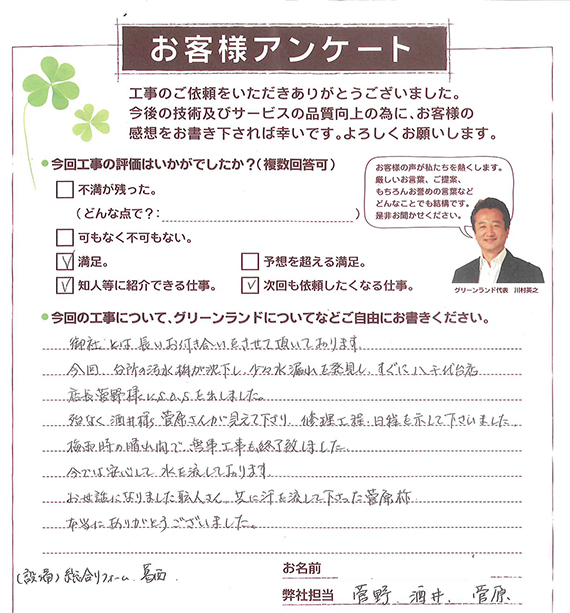 お客様アンケート
工事のご依頼をいただきありがとうございました。
今後の技術及びサービスの品質向上の為に、お客様の
感想をお書き下されば幸いです。よろしくお願いします。
今回工事の評価はいかがでしたか?(複数回答可)
不満が残った。
(どんな点で?: )
可もなく不可もない。
満足。
予想を超える満足。
知人等に紹介できる仕事。
次回も依頼したくなる仕事。
お客様の声が私たちを熱くします。
厳しいお言葉、ご提案、
もちろんお誉めの言葉など
どんなことでも結構です。
是非お聞かせください。
グリーンランド代表 川村英之
今回の工事について、グリーンランドについてなどご自由にお書きください。
御社とは長いお付き合いをさせて頂いております。
今回、台所の汚水桝が沈下し、少々水漏れを発見し、すぐに八千代台店
店長菅野様にS.O.Sを出しました。
程なく酒井様、菅原さんが見えて下さり、修理工程・日程を示して下さいました。
梅雨時の晴れ間で、無事工事も終了致しました。
今では安心して水を流しております。
お世話になりました職人さん、共に汗を流して下さった菅原様
本当にありがとうございました。
(設備)総合リフォーム 葛西
お名前
弊社担当 菅野、酒井、菅原